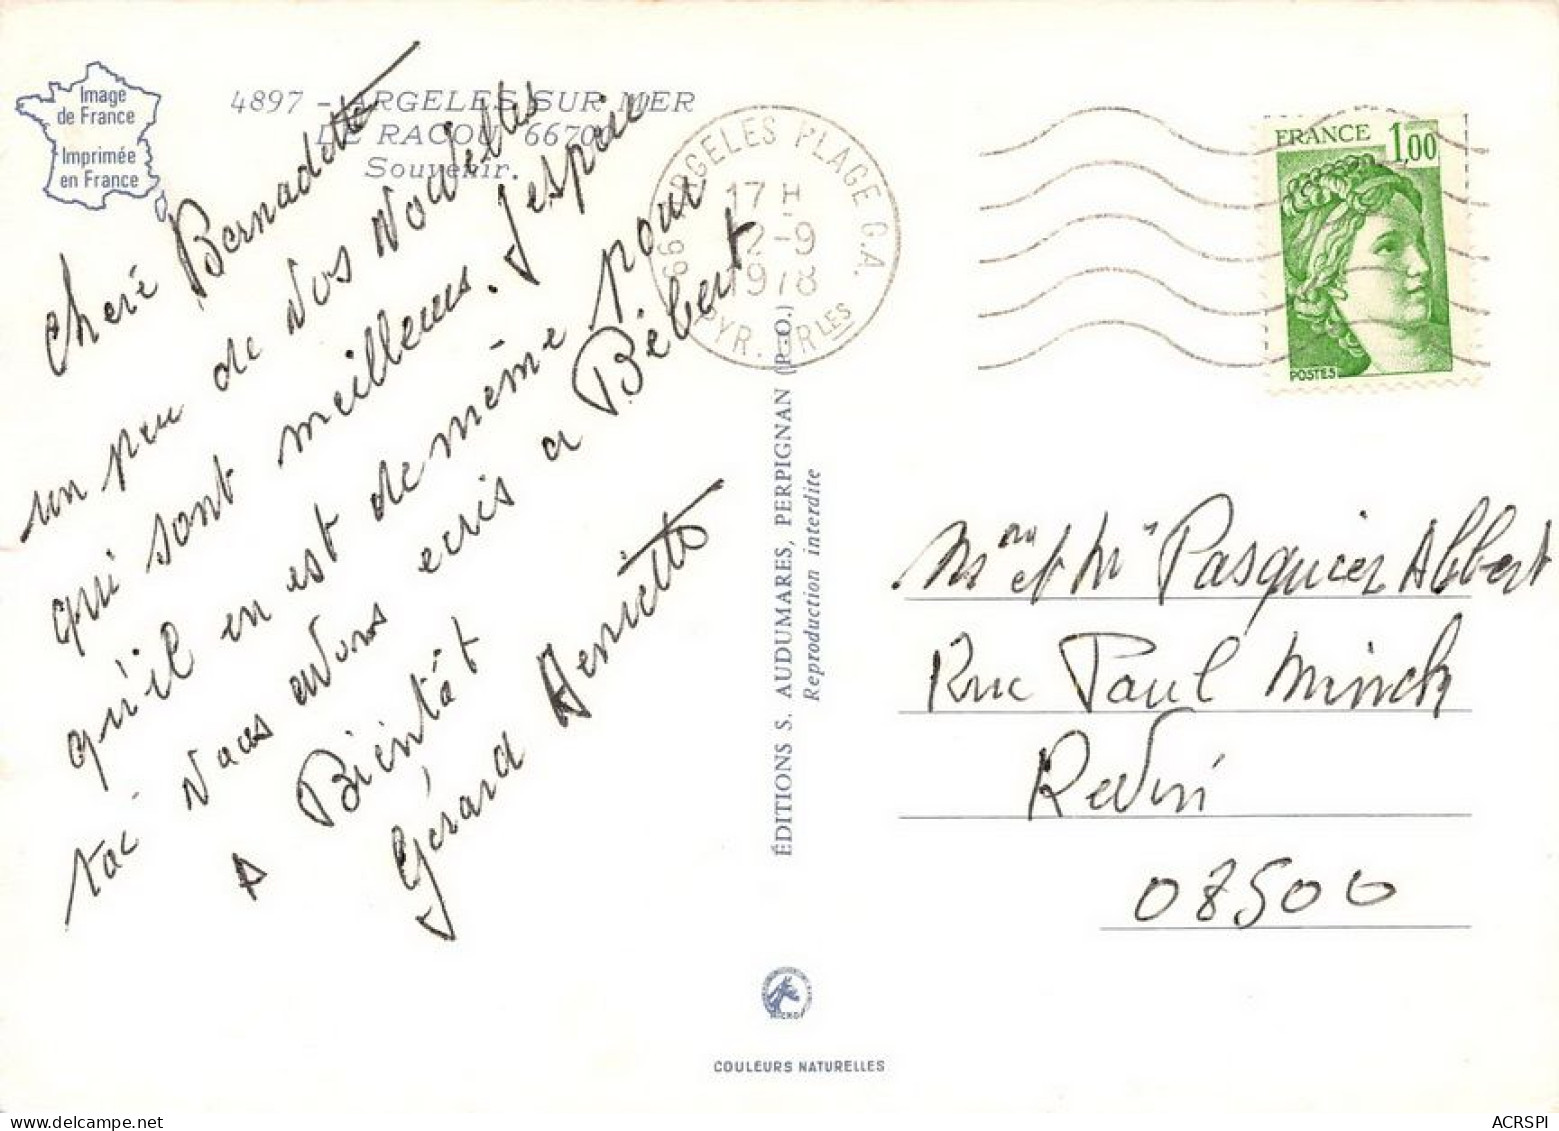 Image
de France
Imprimée
en France
4897 - ARGELES SUR MER
LE RACOU 66700
Souvenir.
Cheré Bernadette
un peu de nos nouvelles
qui sont meilleurs. J'espère
qu'il en est de même pour
toi nous avons ecris a Bébert
A Bientôt
Gérard Henriette
66 ARGELES PLAGE C.A.
17 H
12-9
1978
PYR. ORLES
FRANCE 1,00
POSTES
ÉDITIONS S. AUDUMARES, PERPIGNAN (P.-O.)
Reproduction interdite
Mme et Mr Pasquier Albert
Rue Paul Minck
Revin
08500
MICRO
COULEURS NATURELLES
ACRSPI